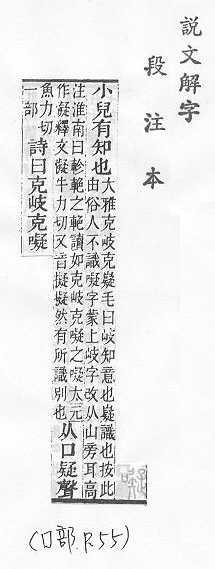 說文解字
段注本
小兒有知也
大雅克岐克嶷毛曰岐知意也嶷識也按此
由俗人不識㘈字蒙上岐字改从山旁耳高
注淮南曰之讀如克岐克㘈之㘈太元
作㘈釋文㘈牛力切又音擬擬然有所識別也
从口疑聲
魚力切
一部
詩曰克岐克㘈
(口部.P.55)